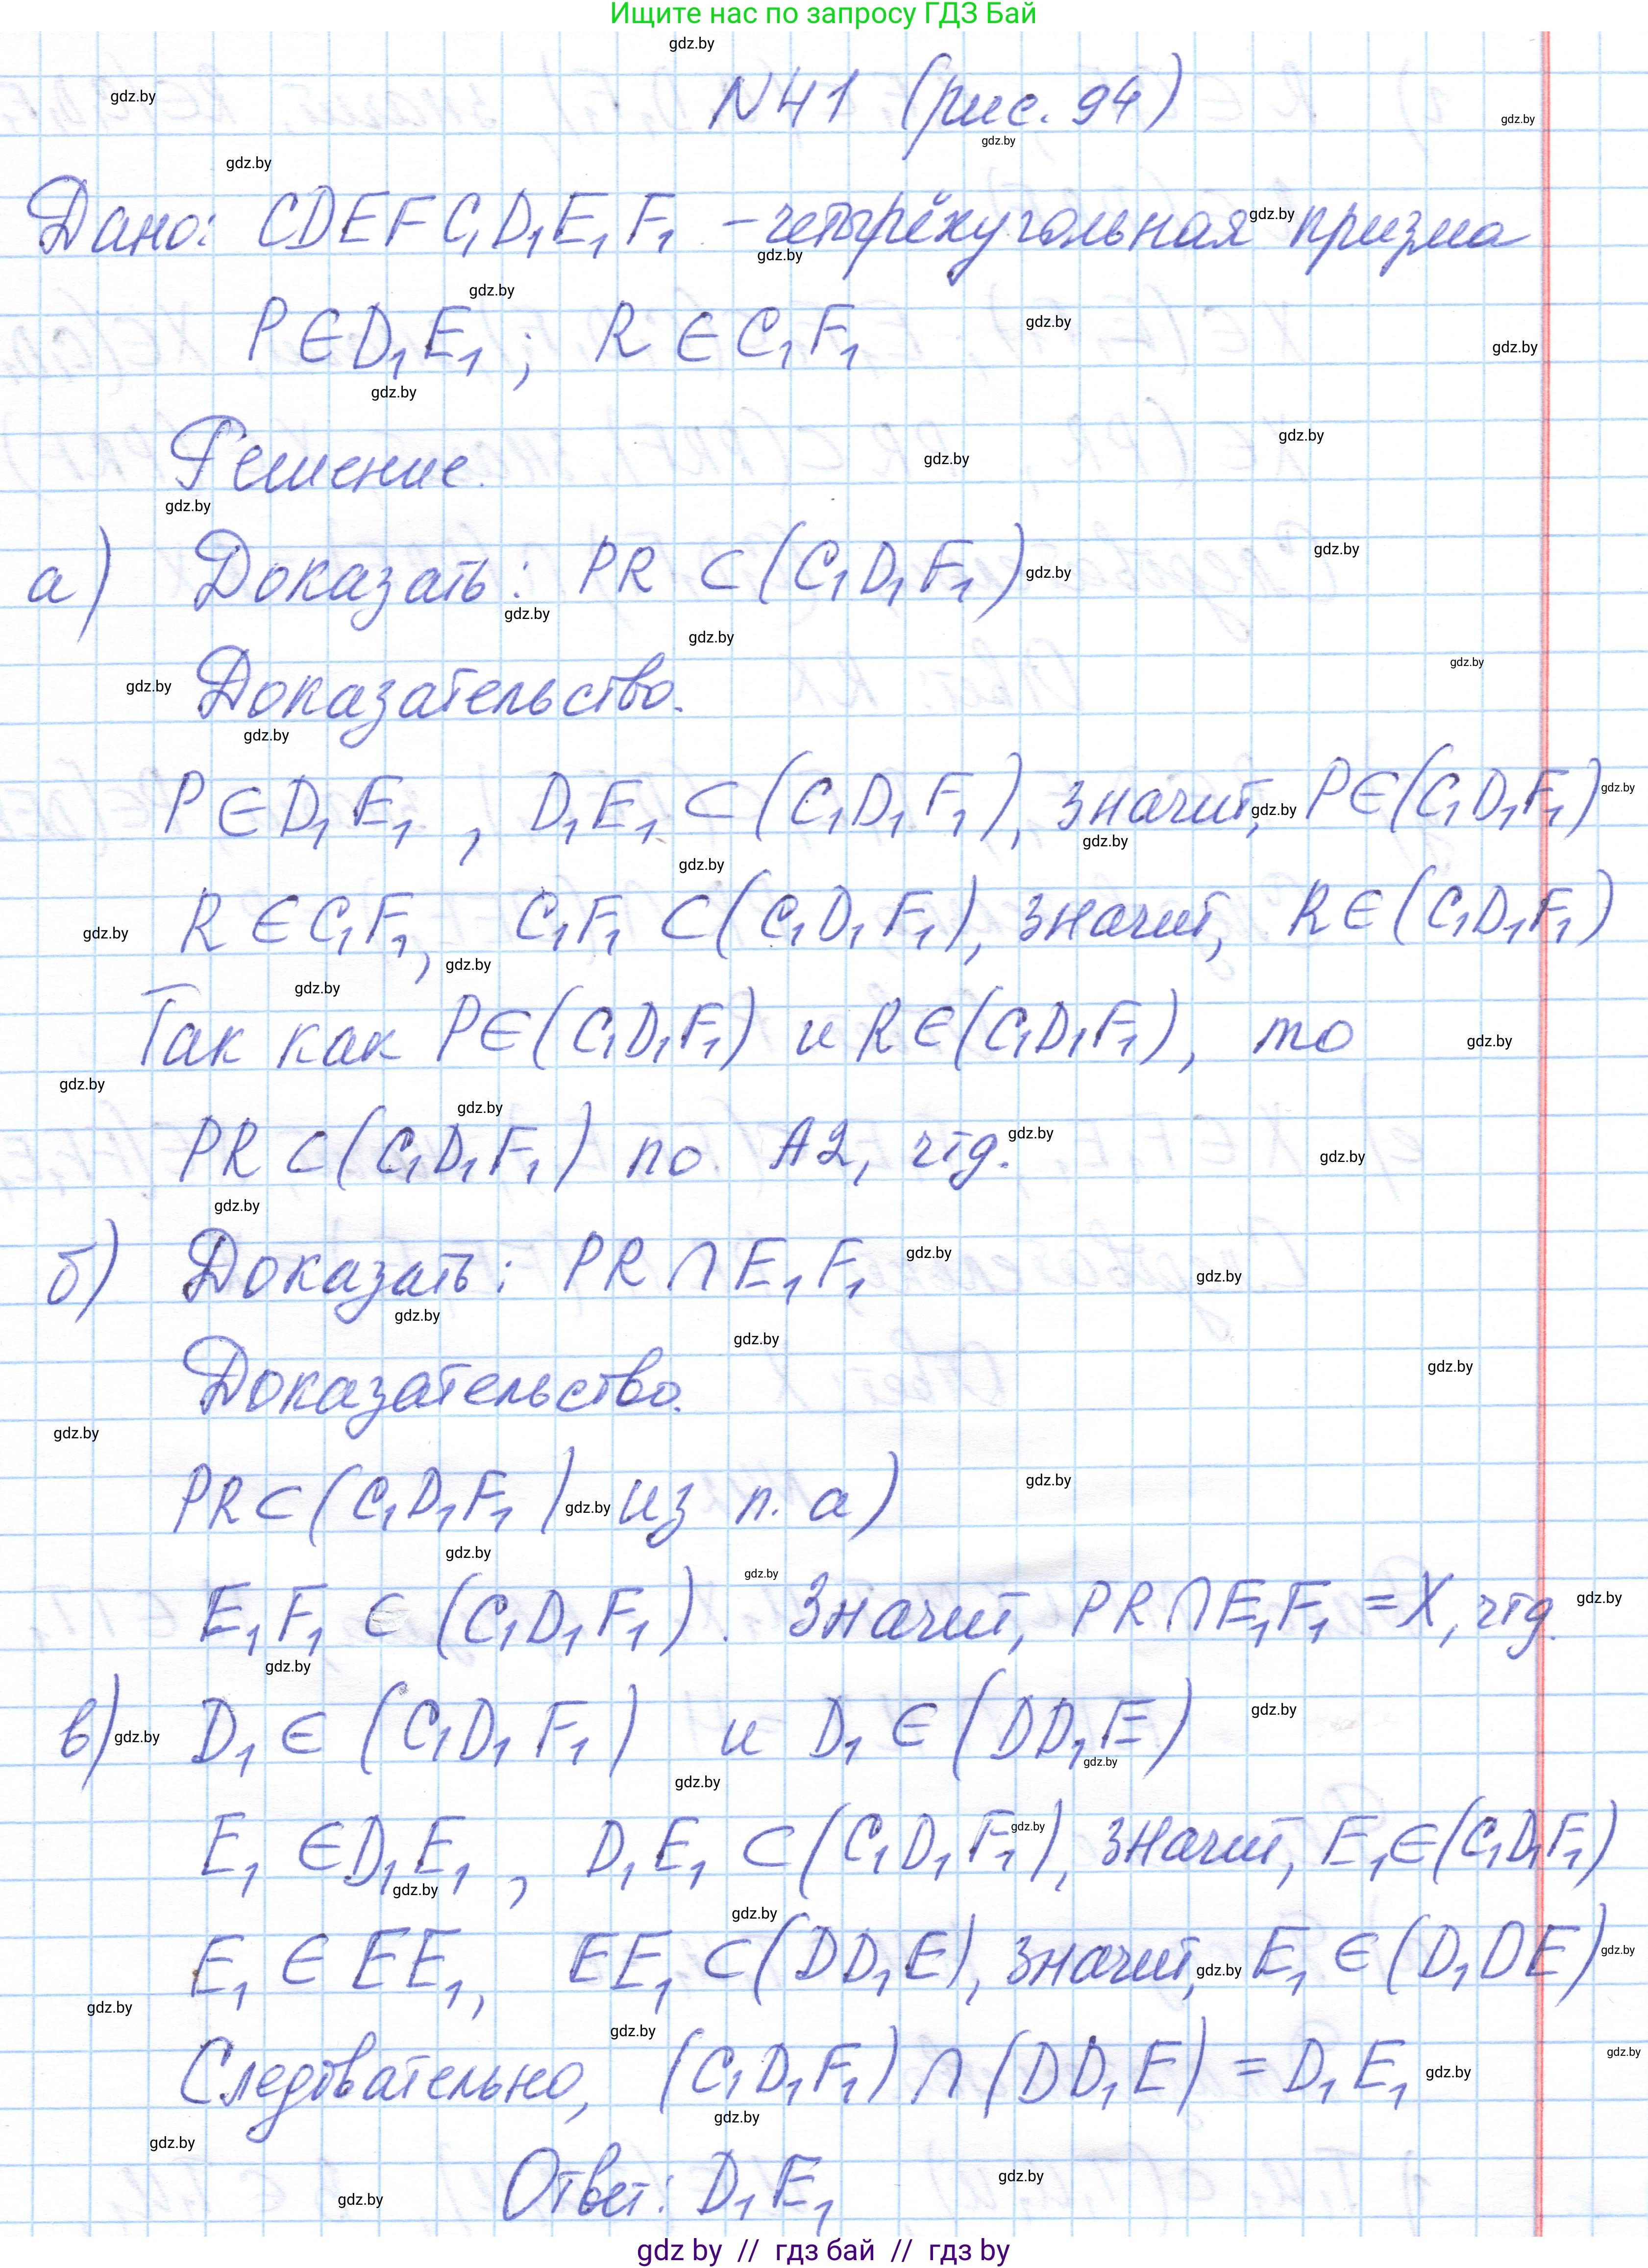 Ищите нас по запросу ГДЗ Бай
N41 (рис. 94)
Дано: CDEFC₁D₁E₁F₁ – четырёхугольная призма
P∈D₁E₁; R∈C₁F₁
Решение.
а) Доказать: PR ⊂ (C₁D₁F₁)
Доказательство.
P∈D₁E₁, D₁E₁ ⊂ (C₁D₁F₁), значит, P∈(C₁D₁F₁)
R∈C₁F₁, C₁F₁ ⊂ (C₁D₁F₁), значит, R∈(C₁D₁F₁)
Так как P∈(C₁D₁F₁) и R∈(C₁D₁F₁), то
PR⊂(C₁D₁F₁) по А2, чтд.
б) Доказать: PR∩E₁F₁
Доказательство.
PR⊂(C₁D₁F₁) из п. а)
E₁F₁ ⊂ (C₁D₁F₁). Значит, PR∩E₁F₁ = X, чтд.
в) D₁ ∈ (C₁D₁F₁) и D₁ ∈ (DD₁E)
E₁ ∈D₁E₁, D₁E₁ ⊂ (C₁D₁F₁), значит, E₁∈(C₁D₁F₁)
E₁ ∈ EE₁, EE₁ ⊂ (DD₁E), значит, E₁ ∈ (D₁DE)
Следовательно, (C₁D₁F₁) ∩ (DD₁E) = D₁E₁
Ответ: D₁E₁
gdz by // гдз бай // гдз by